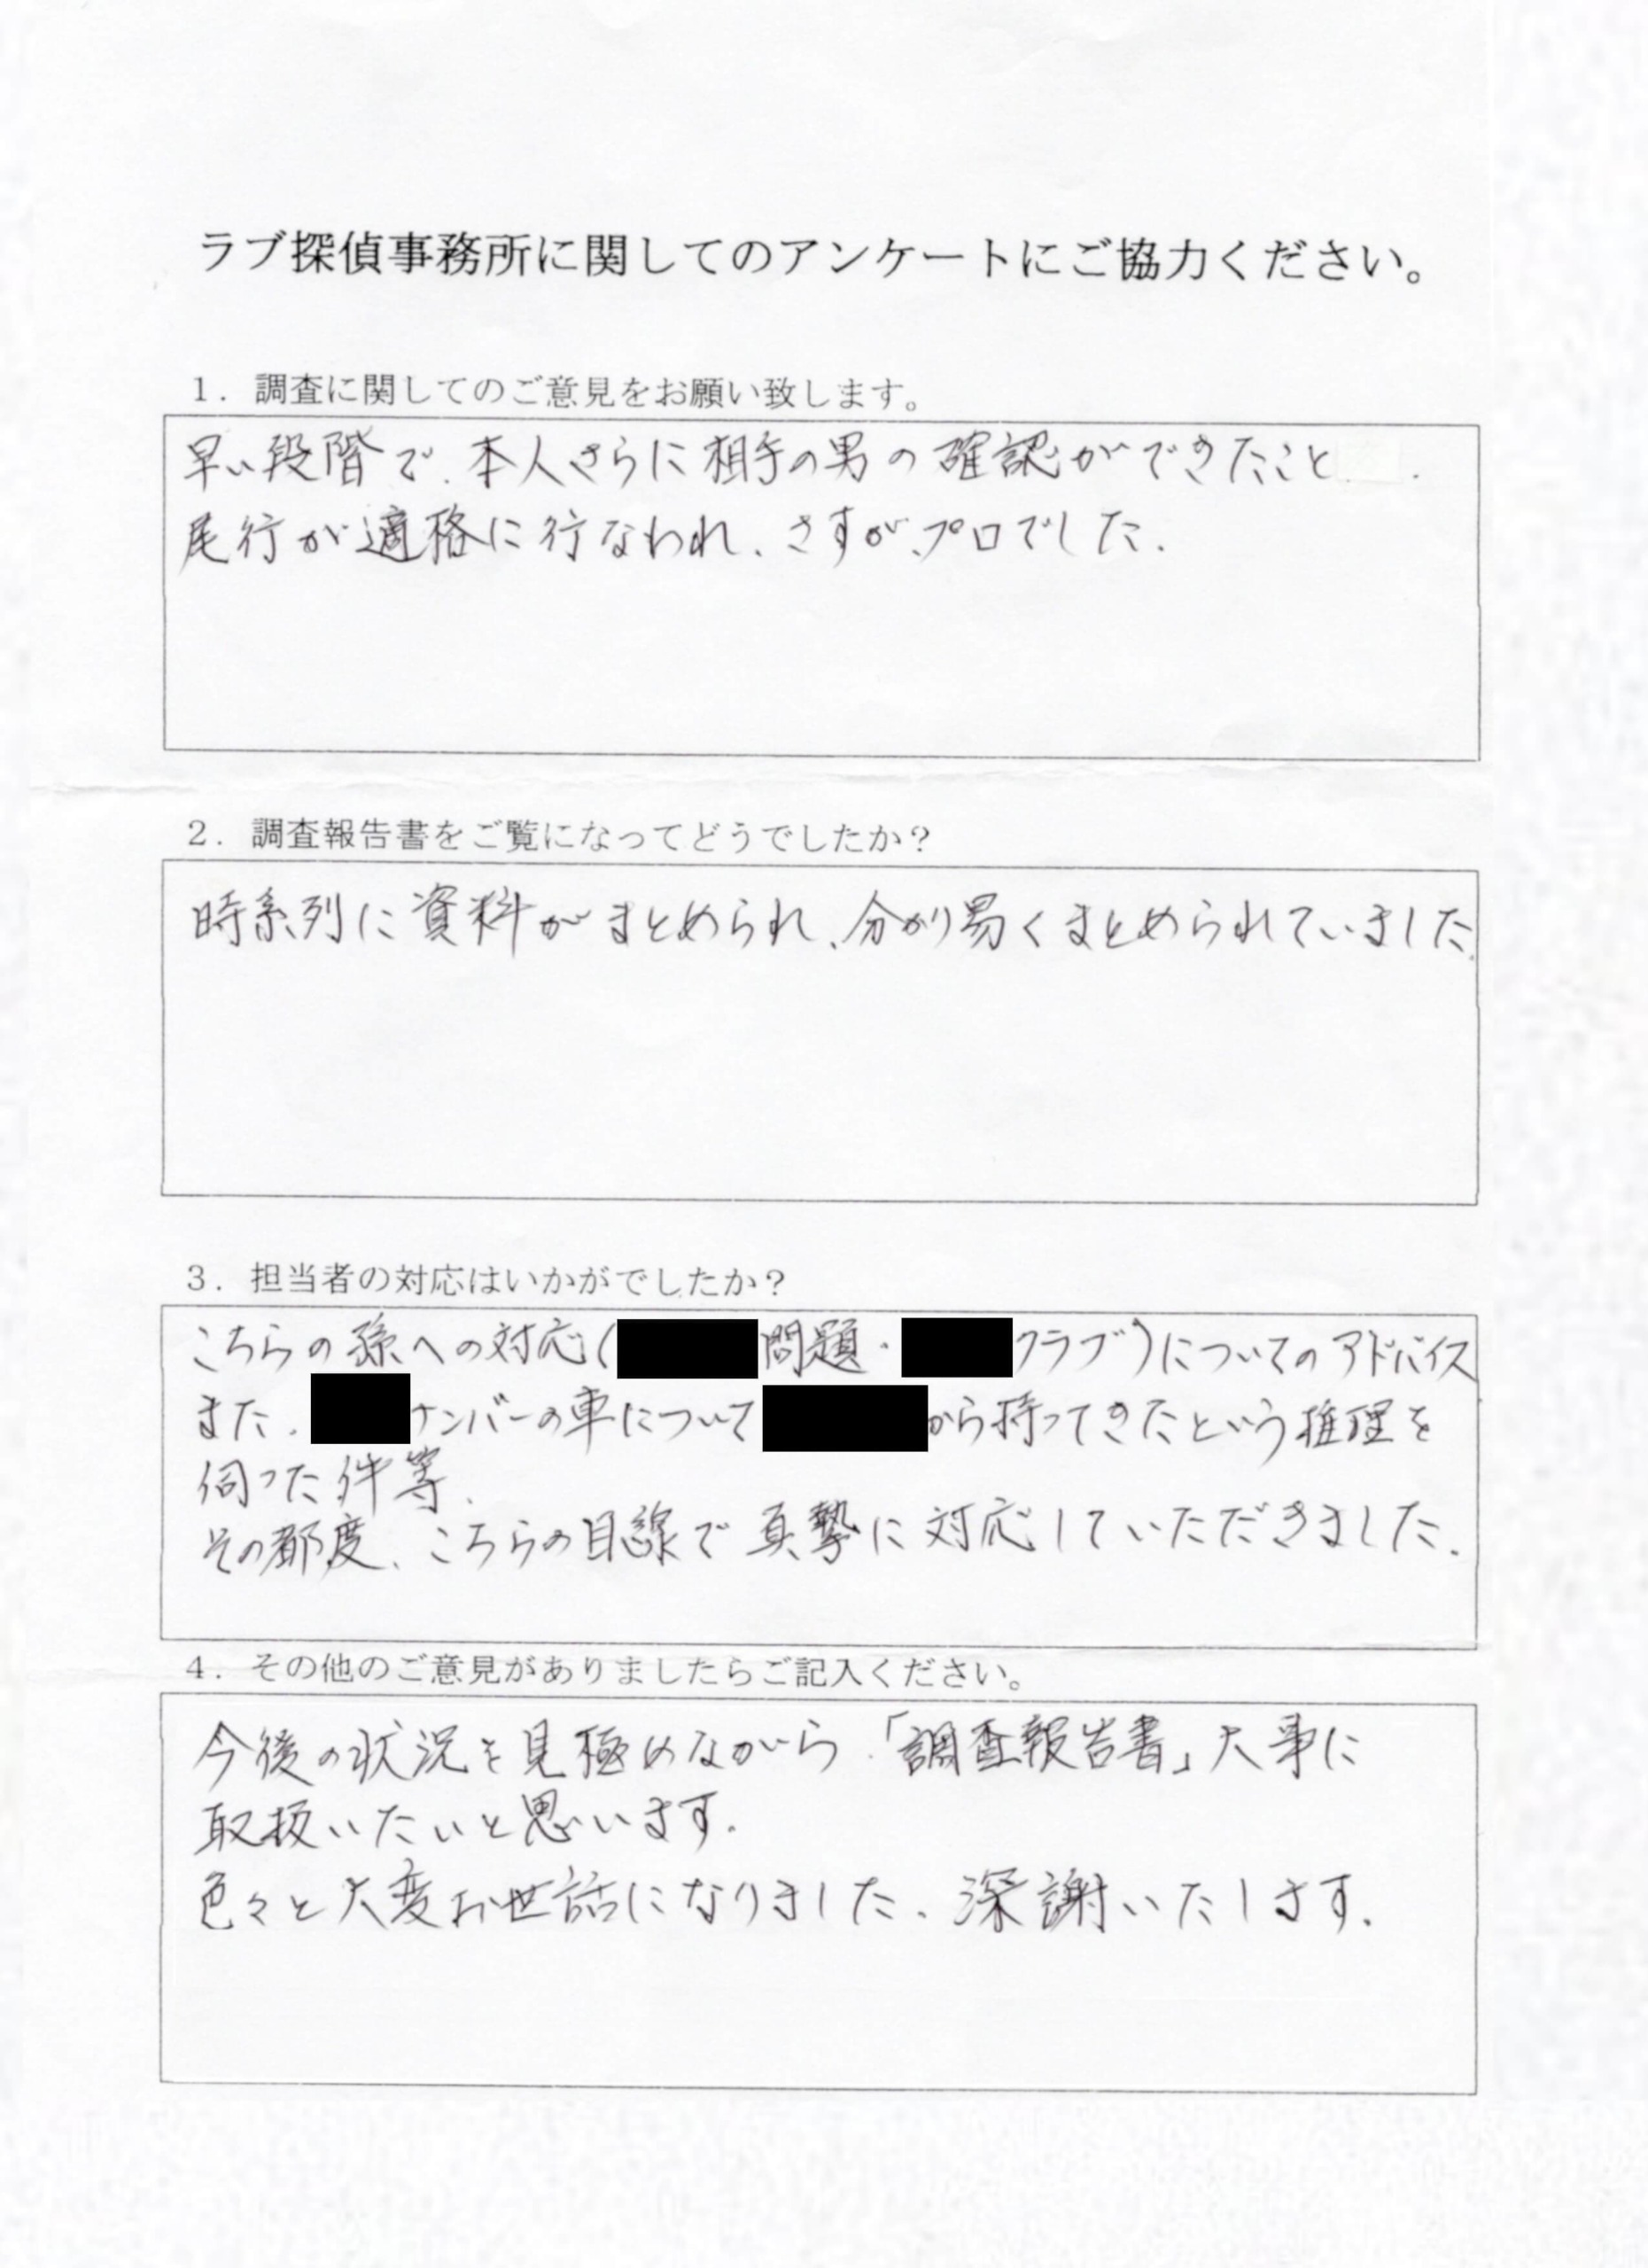 ラブ探偵事務所に関してのアンケートにご協力ください。
1. 調査に関してのご意見をお願い致します。
早い段階で、本人さらに相手の男の確認ができたこと.
尾行が適格に行なわれ、さすが、プロでした.
2. 調査報告書をご覧になってどうでしたか?
時系列に資料がまとめられ、分かり易くまとめられていました.
3. 担当者の対応はいかがでしたか?
こちらの孫への対応(問題・クラブ)についてのアドバイス
また、ナンバーの車についてから持ってきたという推理を
伺った件等.
その都度、こちらの目線で真摯に対応していただきました.
4. その他のご意見がありましたらご記入ください。
今後の状況を見極めながら.「調査報告書」大事に
取扱いたいと思います.
色々と大変お世話になりました、深謝いたします.